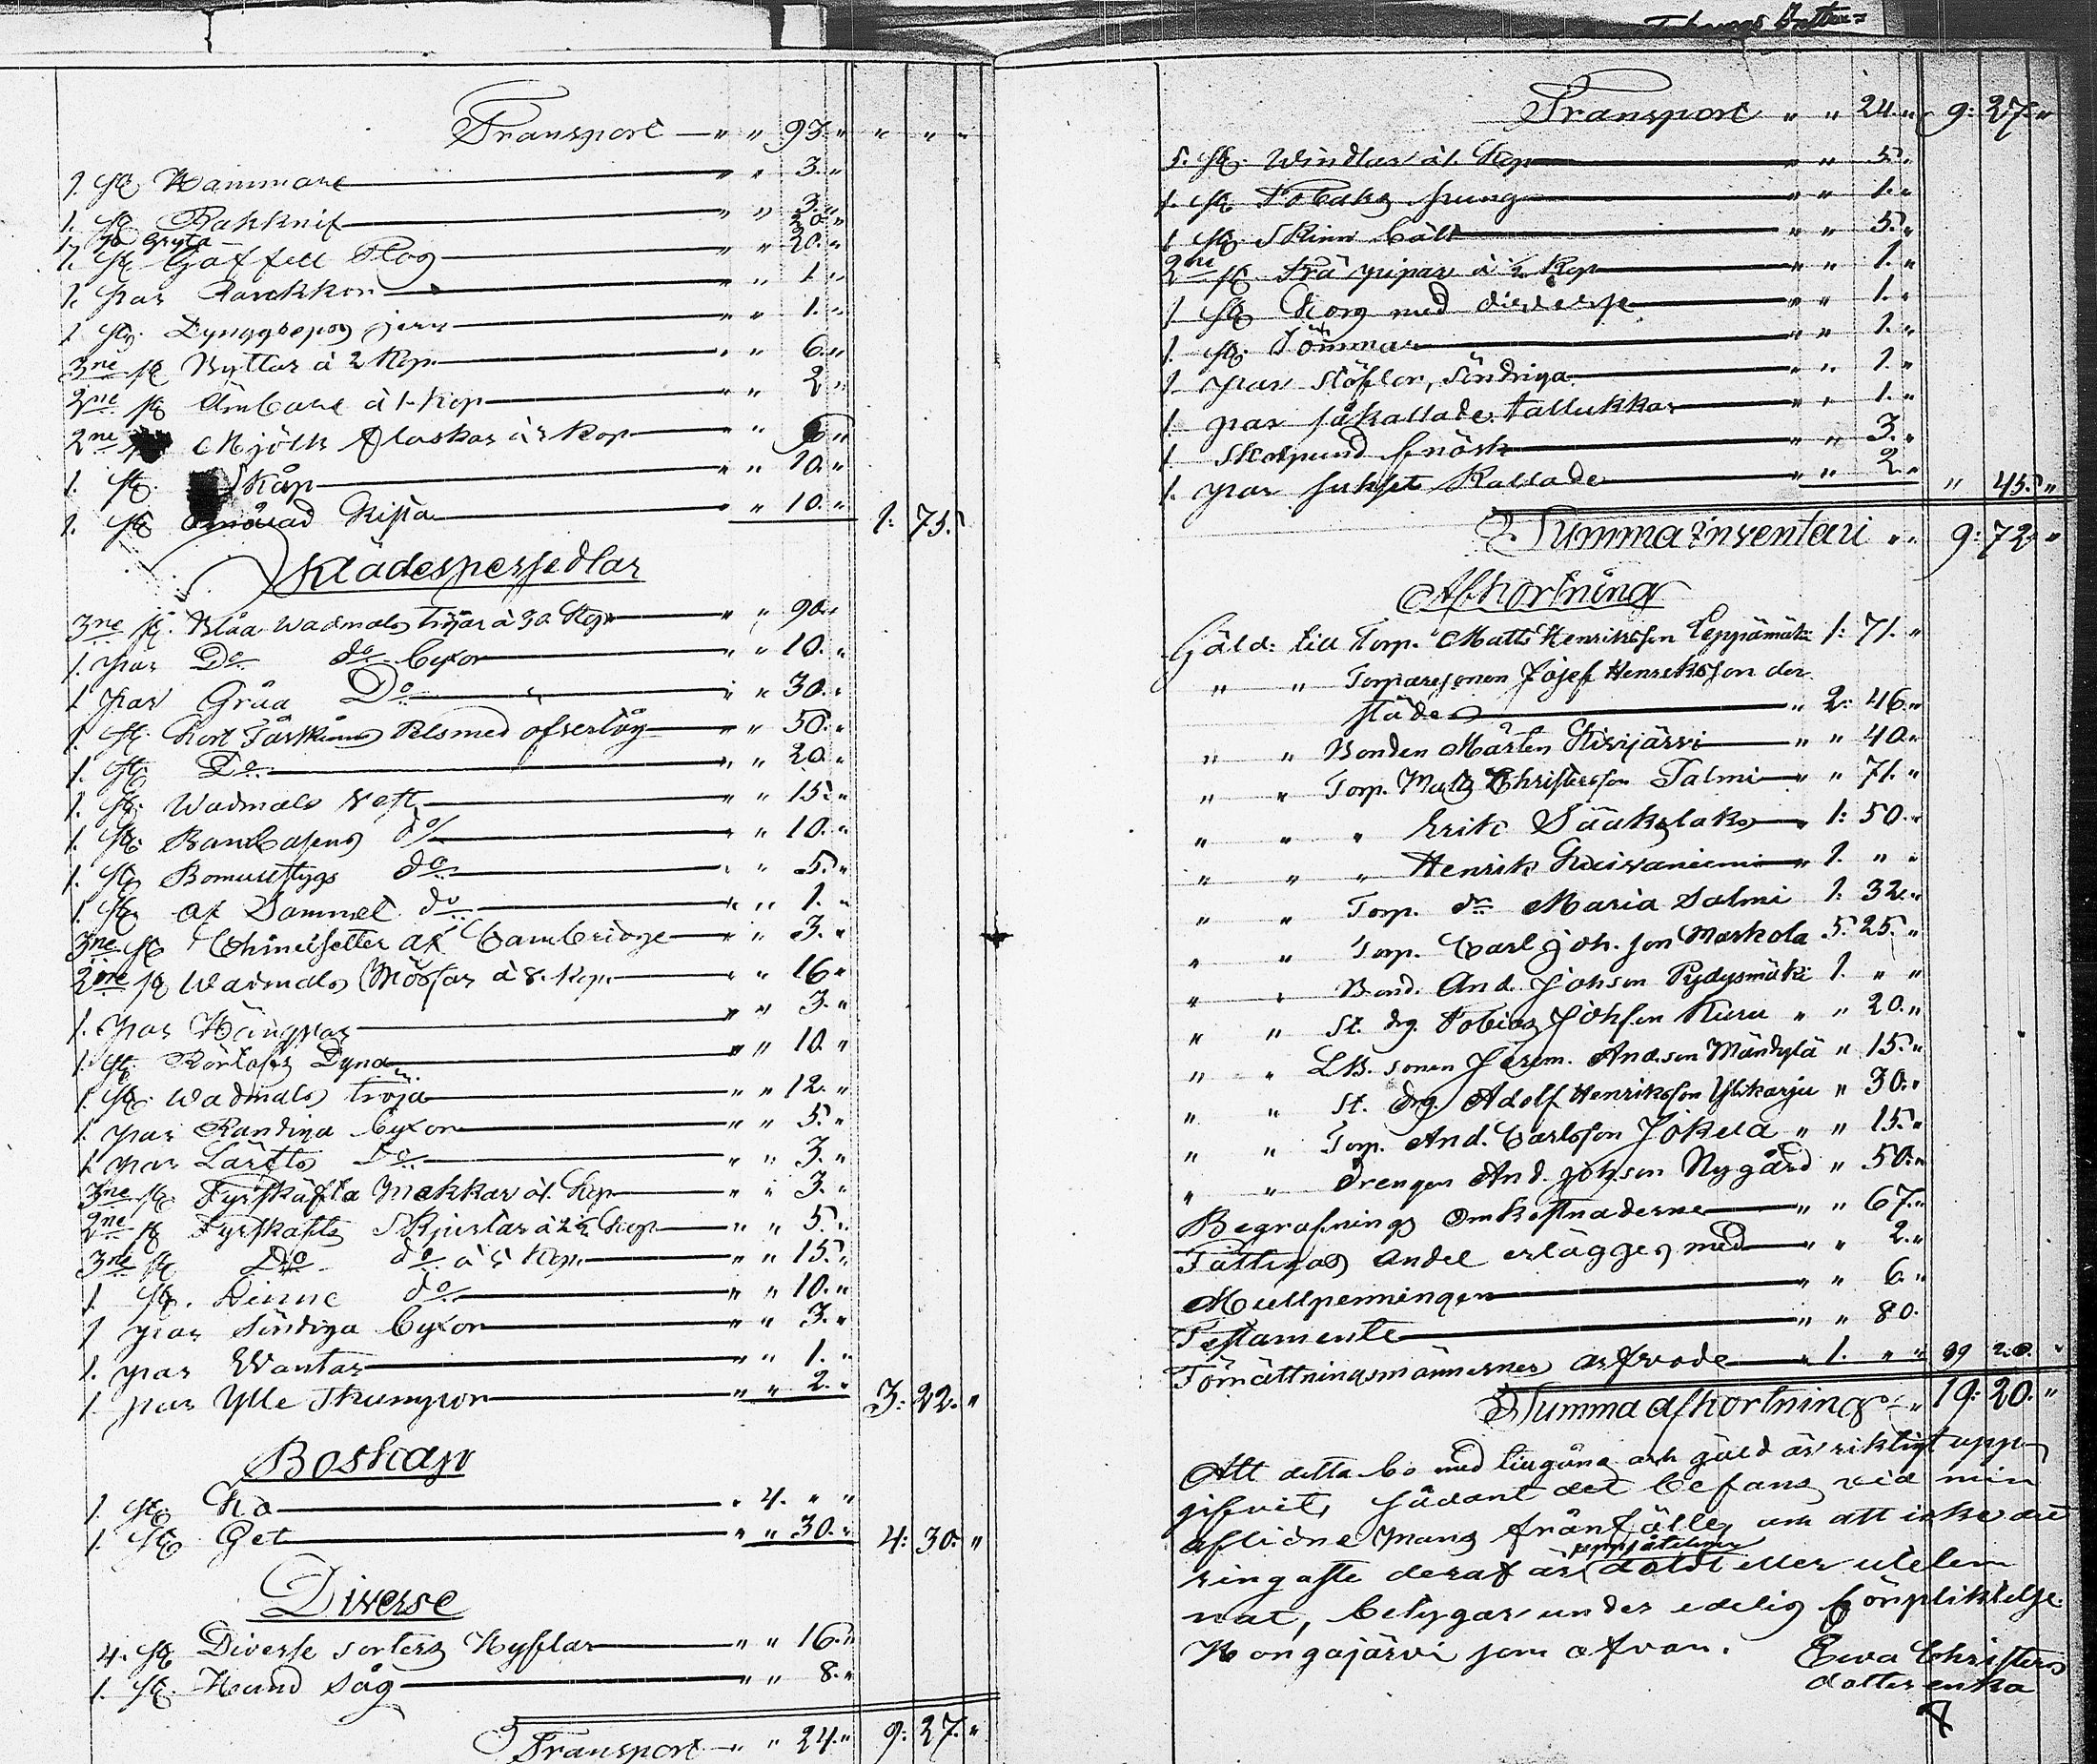 Transport — " " 93. " " " "
1. st. Hammare — " " 3. "
1. st. Rakknif — " " 3. "
1. st. Gryta — 20. "
1. st. Gaffell Plog — " " 20. "
1. par — " " 1. "
1. st. jern — " " 1. "
3ne st. Byttor à 2 Kop. — " " 6. "
2ne st. Ämbare à 1 Kop — " " 2 "
2ne Mjölk flaskor à 3 Kop — " " 6 "
1. st. Skåp — " " 10. "
1. st. Omålad Kista — " " 10. " 1: 75. "
Klädespersedlar
3ne st. Blåa Wadmals tröjar à 30 Kop — " " 90. "
1. par Do do byxor — " " 10. "
1 par Gråa Do — " " 30. "
1. st. Kort Fårskinns Pels med öfvertyg — " " 50. "
1. st. Do — " " 20. "
1. st. Wadmals Vest — " " 15. "
1. st. do — " " 10. "
1. st. Bomulstygs do — " " 5. "
1. st. af Sammet do — " " 1. "
3ne st. Chmisetter af Cambridge — " " 3. "
2ne st. Wadmals Mössor à 8. Kop. — " " 16 "
1. par Hängslar — " " 3. "
1. st. Dyna — " " 10. "
1. st. Wadmals tröja — " " 12. "
1. par Randiga byxor — " " 5. "
1. par Lärfts Do — " " 3. "
3ne st. Fyrskäfta Mekkor à 1. Kop — " " 3. "
2ne st. Fyrskafts Skjortor à 2½ Kop — " " 5. "
3ne st. Do do à 5 Kop. — " " 15. "
1. st. Linne do — " " 10. "
1 par Söndiga byxor — " " 3. "
1. par Wantar — " " 1. "
1. par Ylle Strumpor — " " 2. " 3: 22. "
Boskap
1. st. Ko — " 4. " "
1. st. Get — " " 30. " 4: 30. "
Diverse
4. st. Diverse sorters Hyflar — " " 16. "
1. st. Hand Såg — " " 8. "
Transport — " " 24. " 9: 27. "
Transport " " 24. " 9: 27. "
5. st. Windlar à 1. Kop — " " 5. "
1. st. Tobaks pung — " " 1. "
1 st. Skinn bält — " " 5. "
2ne st. Trä pipar à ½ Kop — " " 1. "
1. st. Korg med diverse — " " 1. "
1. st. Tömmar — " " 1. "
1 par stöflor, söndriga — " " 1. "
1. par såkallade tallukkor — " " 1. "
1 Skålpund — " " 3. "
1. par Kallade — " " 2. " " 45. "
Summa inventari " " 9: 72. "
Afkortning
Gäld: till Torp. Matts Henriksson Leppämäki 1: 71. "
" " Torparesonen Josef Henriksson der
städes — " 2: 46. "
" " Bonden Mårten Kivijärvi — " " 40. "
" " Torp. Matts Christersson Salmi — " " 71. "
" " " Erik Sääkslaks — 1: 50. "
" " " Henrik Kuivaniemi — " 1. " "
" " Torp. do Maria Salmi 1: 32. "
" " Torp. Carl Joh. son Markola 5: 25. "
" " Bond. And. Johson Pydysmäki 1. " "
" " St. drg. Tobias Johson Kuru " " 20. "
" " LB. sonen Jerem. Andson Mändylä " 15. "
" " St. drg. Adolf Henriksson Ylikarju " 30. "
" " Torp. And. Carlsson Jokela " " 15. "
" " Drengen And. Johson Nygård " 50. "
Begrafnings Omkostnaderne — " " 67. "
Fattigas Andel erlägges med — " " 2. "
Mullpenningen — " " 6. "
Testamente — " " 80.
Förrättningsmännernes arfvode — " 1. " " 19 20. "
Summa afkortning " 19: 20. "
Att detta bo med tillgång och gäld är riktigt upp-
gifvit, sådant det befans vid min
aflidne Mans frånfälle, och att icke det
ringaste deraf är uppsåteligen doldt eller utelem
nat, betygar under edelig förpliktelse.
Kangajärvi som ofvan. Ewa Christers
dotter enka